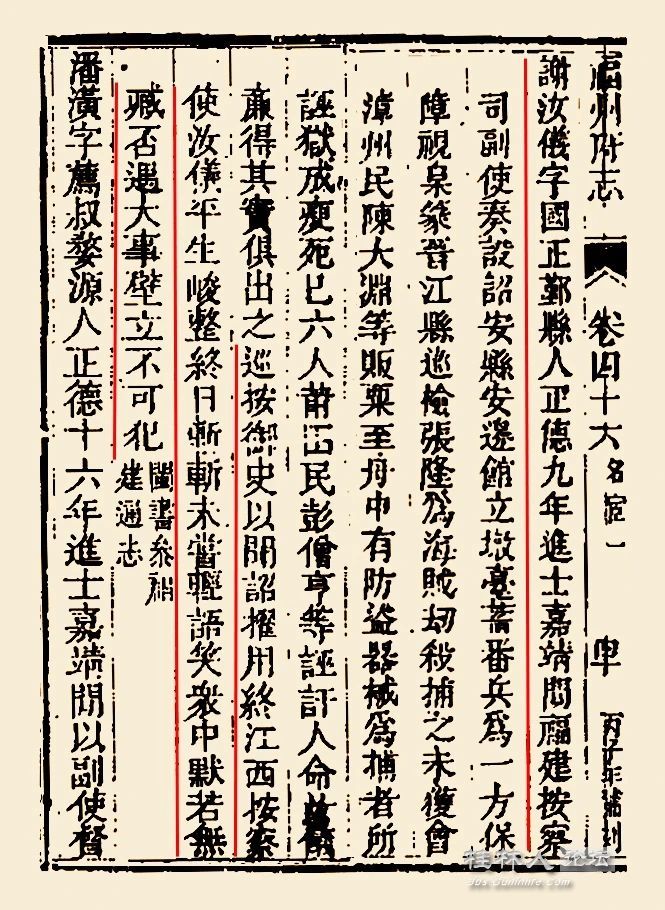 福州府志 卷四十六 名宦一 丙子年補刻
謝汝儀字國正鄞縣人正德九年進士嘉靖間福建按察
司副使奏設詔安縣安邊館立墩臺蓄番兵爲一方保
障視臬篆晉江縣巡檢張隆爲海賊刧殺捕之未獲會
漳州民陳大淵等販粟至舟中有防盜器械爲捕者所
誣獄成瘦死已六人莆田民彭僧亨等誣訐人命
廉得其實俱出之巡按御史以聞詔擢用終江西按察
使汝儀平生峻整終日嶄嶄未嘗輕語笑衆中默若無
臧否遇大事壁立不可犯 閩書參福
建通志
潘潢字薦叔婺源人正德十六年進士嘉靖間以副使督
桂林人论坛